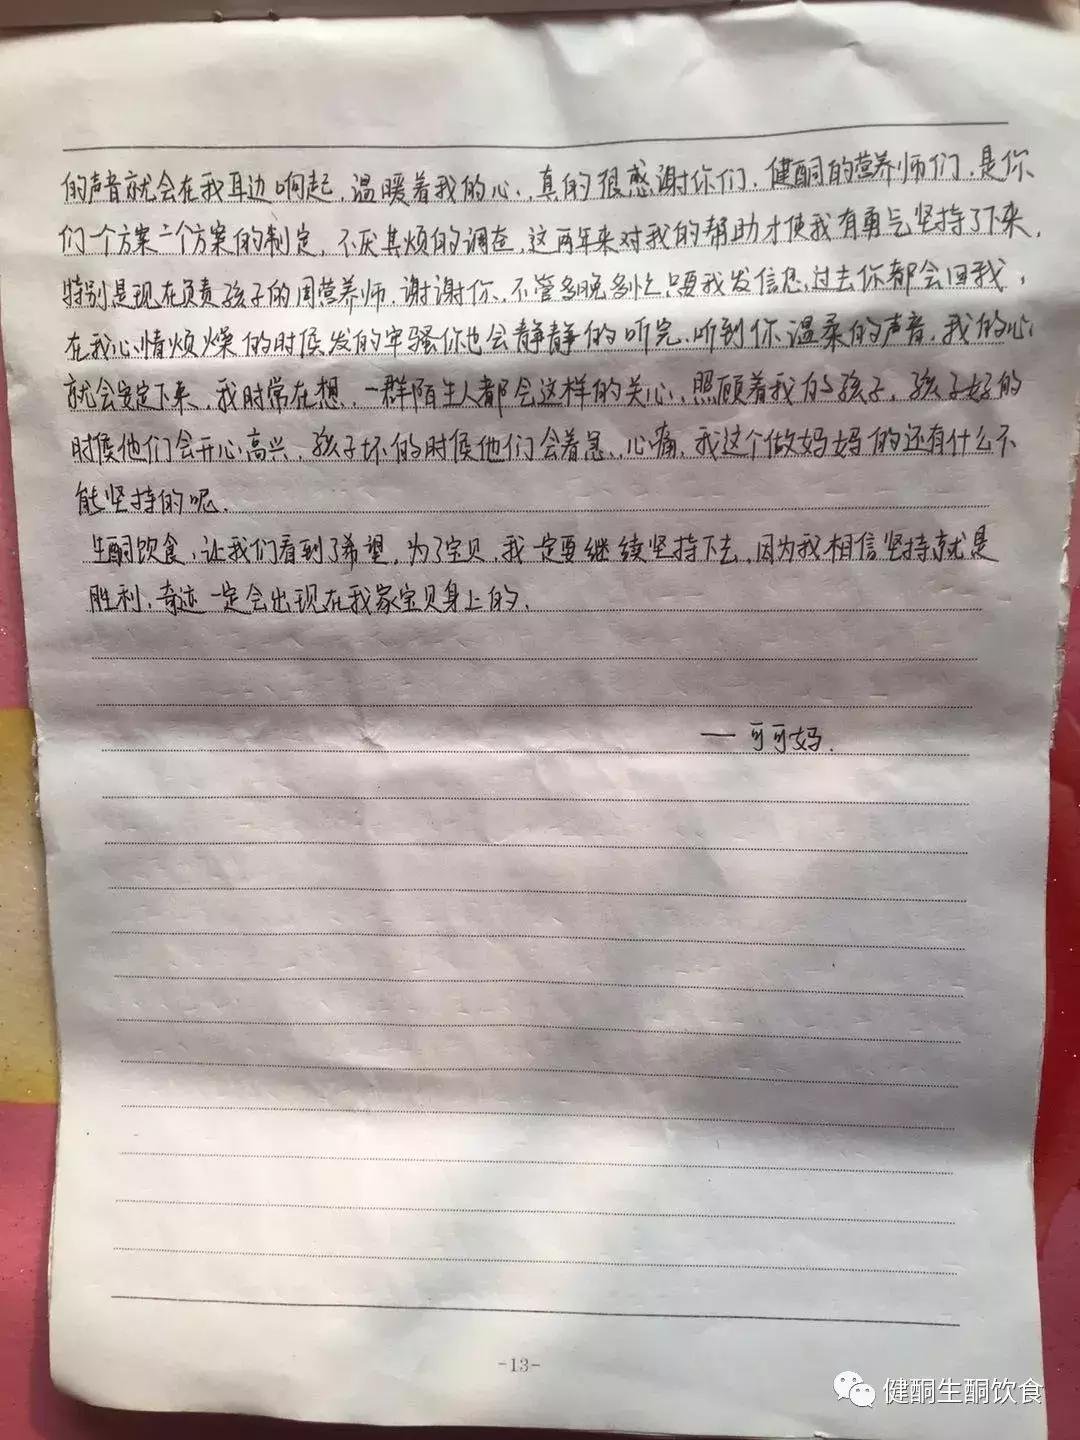 的声音就会在我耳边响起，温暖着我的心，真的很感谢你们，健酮的营养师们，是你
们一个方案一个方案的制定，不厌其烦的调查，这两年来对我的帮助才使我有勇气坚持了下来，
特别是现在负责孩子的周营养师，谢谢你，不管多晚多忙只要我发信息过去你都会回我，
在我心情烦燥的时候发的牢骚你也会静静的听完，听到你温柔的声音，我的心
就会安定下来，我时常在想，一群陌生人都会这样的关心、照顾着我的孩子，孩子好的
时候他们会开心高兴，孩子坏的时候他们会着急、心痛，我这个做妈妈的还有什么不
能坚持的呢，
生酮饮食，让我们看到了希望，为了宝贝，我一定要继续坚持下去，因为我相信坚持就是
胜利，奇迹一定会出现在我家宝贝身上的，
— 可可妈.
-13-
健酮生酮饮食